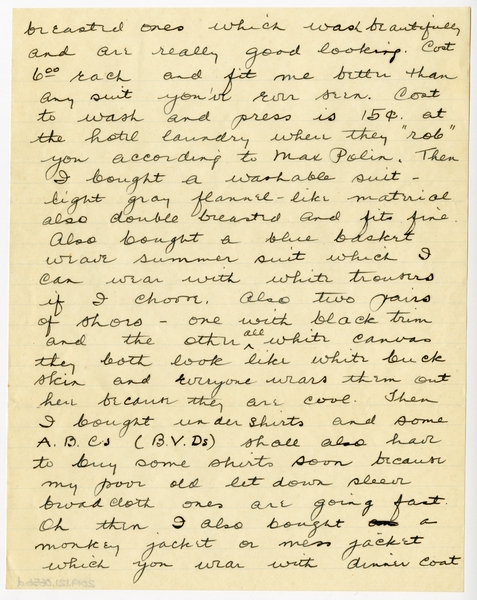 breasted ones which wash beautifully
and are really good looking. Cost
6⁰⁰ each and fit me better than
any suit you've ever seen. Cost
to wash and press is 15¢. at
the hotel laundry when they "rob"
you according to Max Polin. Then
I bought a washable suit -
light gray flannel-like material
also double breasted and fits fine.
Also bought a blue basket
weave summer suit which I
can wear with white trousers
if I choose. Also two pairs
of shoes - one with black trim
and the other all white canvas
they both look like white buck
skin and everyone wears them out
here because they are cool. Then
I bought undershirts and some
A.B.C.s (B.V.Ds) shall also have
to buy some shirts soon because
my poor old let down sleeve
broadcloth ones are going fast.
Oh then I also bought a
monkey jacket or mess jacket
which you wear with dinner coat